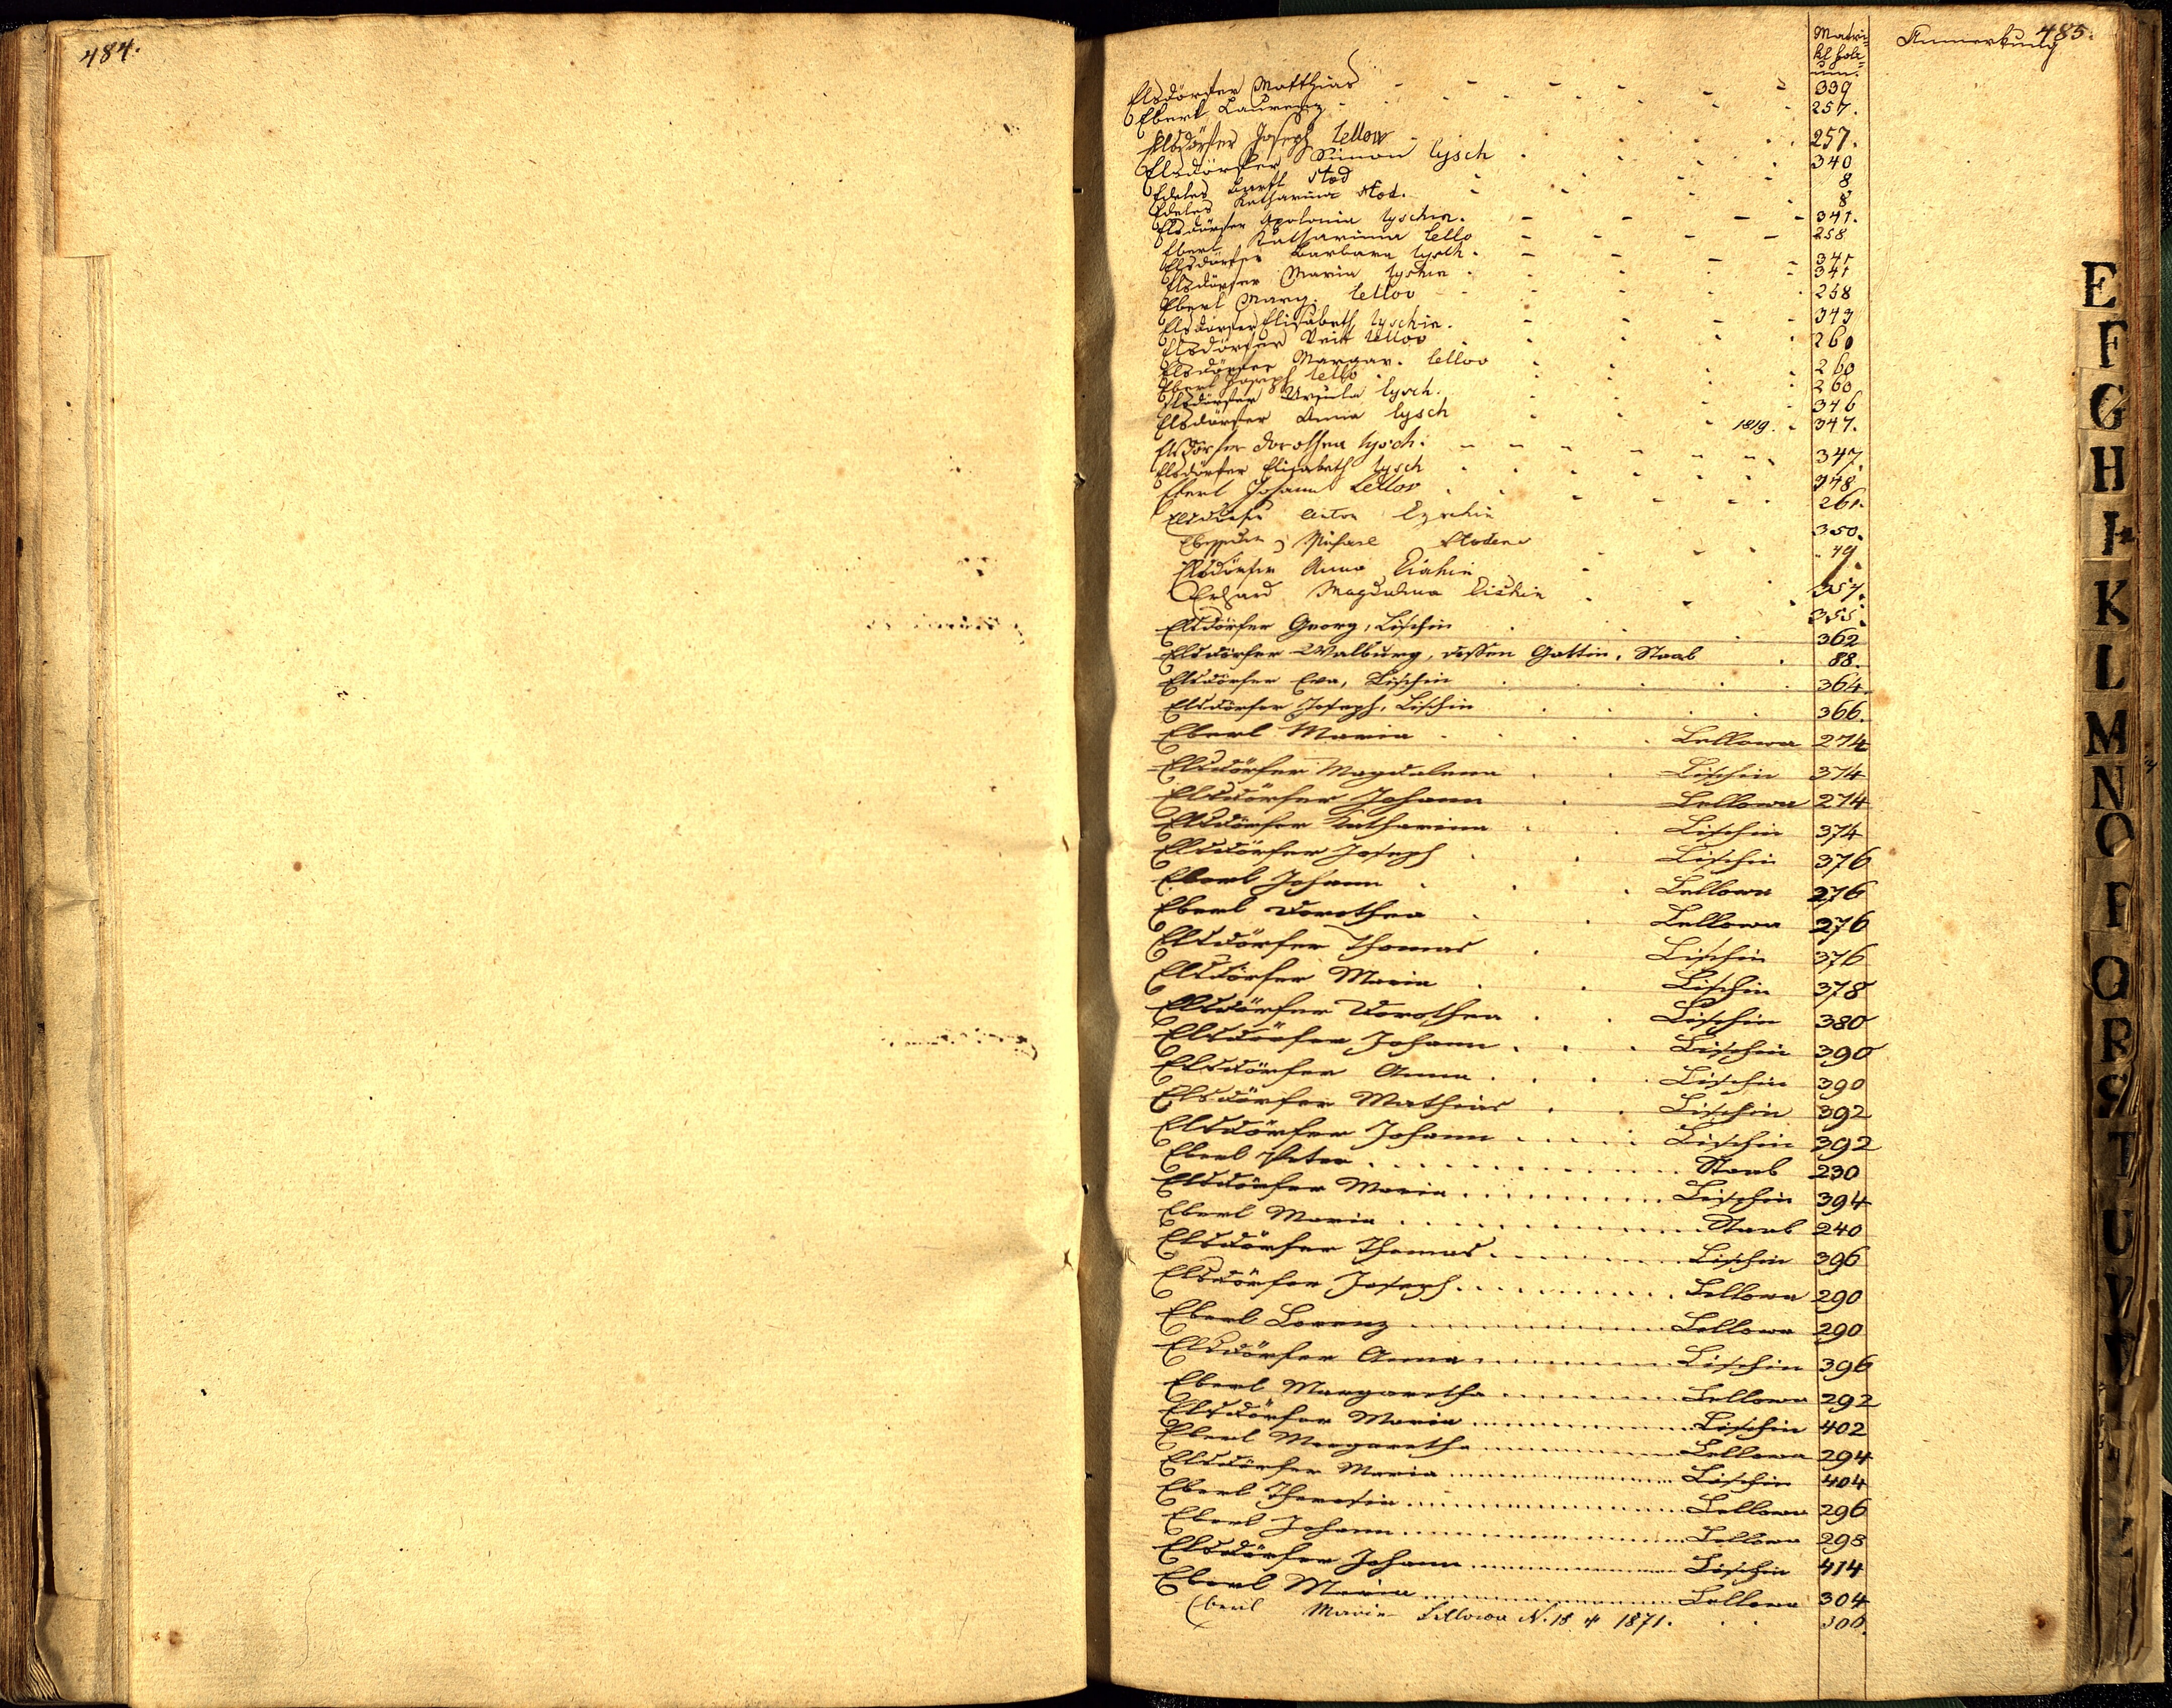 484.
485.
Matri=
kl folie=
num.
Anmerkung
Elsdörfer Matthias - - - - - - 339
Eberl Laurenz - 257.
Elsdörfer Joseph lellow 257.
Elsdörfer Simon lysch 340
Edeles Bartl stod 8
Edeles Katharina stod. 8
Elsdörfer Apolonia lyschin. - - - - 341.
Eberl Katharina lello - - - - 258
Elsdörfer Barbara lysch. - - - - 341
Elsdörfer Maria lyschin 341
Eberl Marg. lellov 258
Elsdörfer Elisabeth lyschin. 343
Elsdörfer Veit lellov 260
Elsdörfer Margar. lellov 260
Eberl Joseph lello 260
Elsdörfer Ursula lysch. 346
Elsdörfer Anna lysch 1819. 347.
Elsdörfer Dorothea lysch. 347.
Elsdörfer Elisabeth lysch 348
Eberl Johann Lellov 261.
Elsdörfer Anton Lyschin 350.
Michael Stoden 49
Elsdörfer Anna Lischin 357.
Erhard Magdalena Lischin 355.
Elsdörfer Georg, Lischin 362
Elsdörfer Walburg, dessen Gattin, Staab 88.
Elsdörfer Eva, Lischin 364.
Elsdörfer Joseph, Lischin 366.
Eberl Maria Lellowa 274
Elsdörfer Magdalena Lischin 374
Elsdörfer Johann Lellowa 274
Elsdörfer Katharina Lischin 374
Elsdörfer Joseph Lischin 376
Eberl Johann Lellowa 276
Eberl Dorothea Lellowa 276
Elsdörfer Thomas Lischin 376
Elsdörfer Maria Lischin 378
Elsdörfer Dorothea Lischin 380
Elsdörfer Johann Lischin 390
Elsdörfer Anna Lischin 390
Elsdörfer Mathias Lischin 392
Elsdörfer Johann Lischin 392
Eberl Peter Staab 230
Elsdörfer Maria Lischin 394
Eberl Maria Staab 240
Elsdörfer Thomas Lischin 396
Elsdörfer Joseph Lellowa 290
Eberl Lorenz Lellowa 290
Elsdörfer Anna Lischin 396
Eberl Margaretha Lellowa 292
Elsdörfer Maria Lischin 402
Eberl Margaretha Lellowa 294
Elsdörfer Maria Lischin 404
Eberl Theresia Lellowa 296
Eberl Johann Lellowa 298
Elsdörfer Johann Lischin 414
Eberl Maria Lellowa 304
Eberl Marie Lellowa N. 18 1871. 306.
E
F
G
H
I
K
L
M
N
O
P
Q
R
S
T
U
V
Z